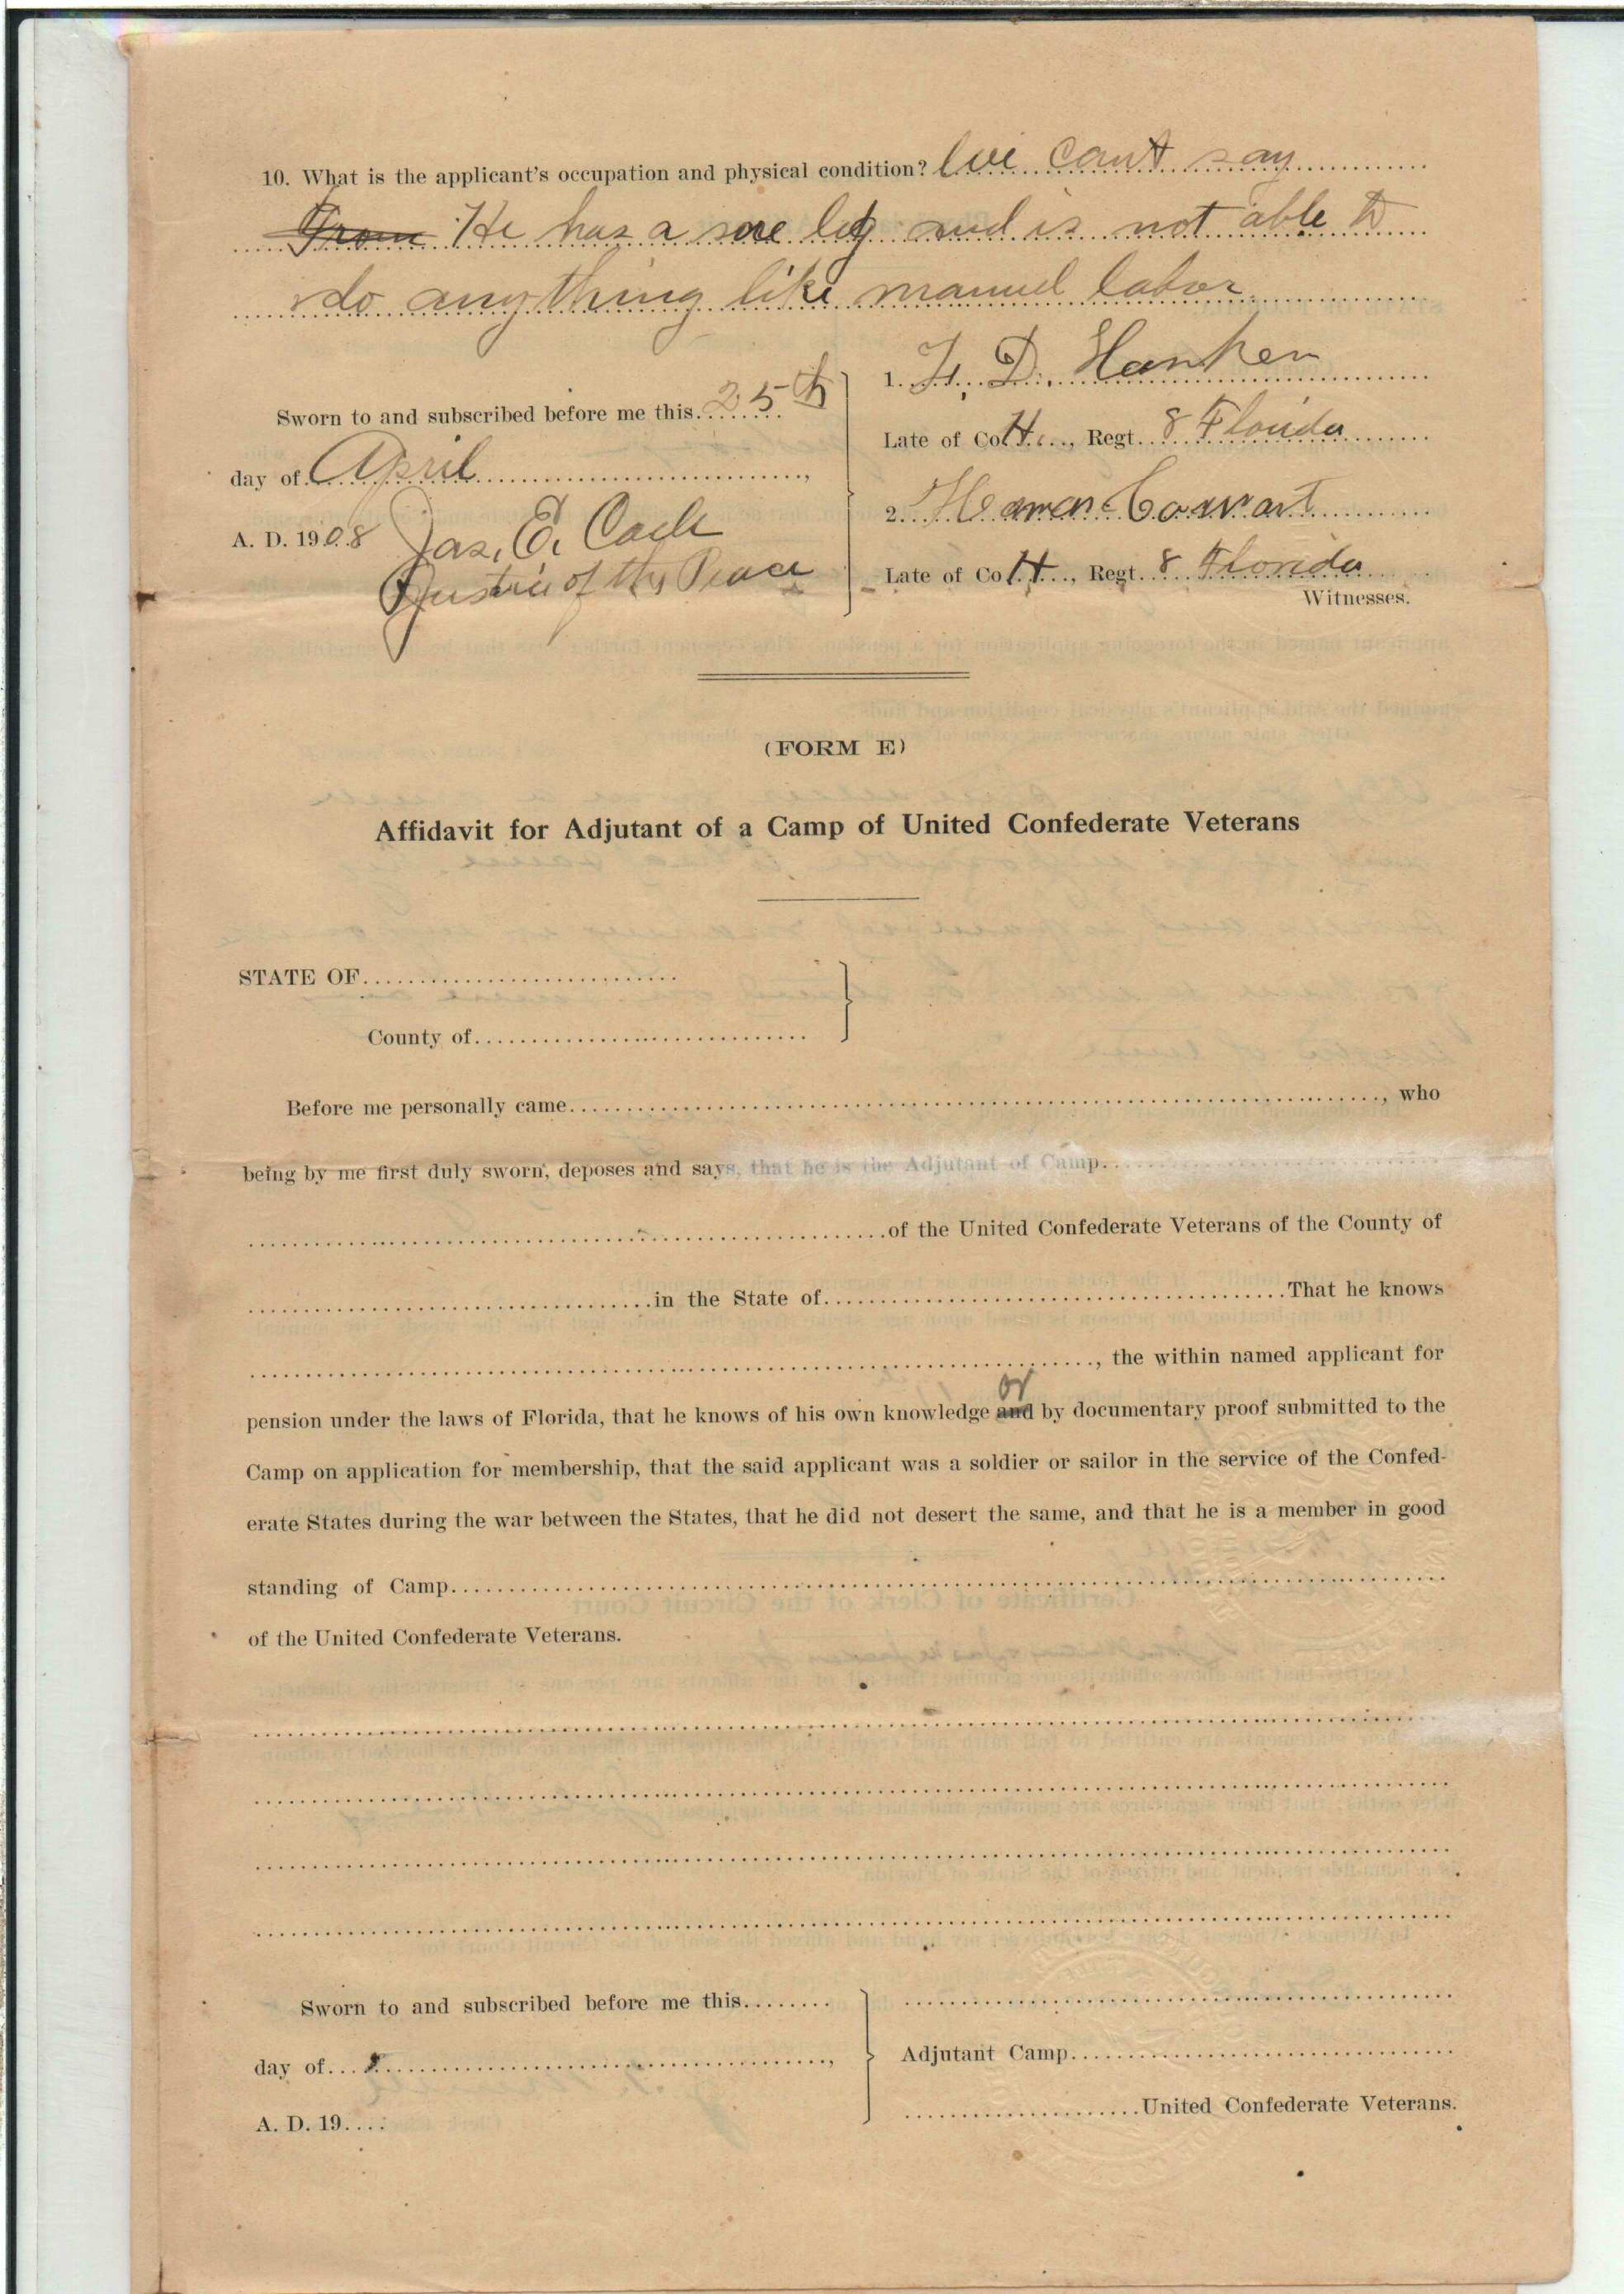 10. What is the applicant's occupation and physical condition? We cant say
From He has a sore leg and is not able to
do anything like manuel labor
Sworn to and subscribed before me this 25th
day of April,
A. D. 1908 Jas. E. Cade
Justice of the Peace
1. H. D. Hanken
Late of Co H, Regt. 8 Florida
2. Heman Cowart
Late of Co H, Regt. 8 Florida
Witnesses.
(FORM E)
Affidavit for Adjutant of a Camp of United Confederate Veterans
STATE OF
County of
Before me personally came, who
being by me first duly sworn, deposes and says, that he is the Adjutant of Camp
of the United Confederate Veterans of the County of
in the State of That he knows
, the within named applicant for
or
pension under the laws of Florida, that he knows of his own knowledge and by documentary proof submitted to the
Camp on application for membership, that the said applicant was a soldier or sailor in the service of the Confed-
erate States during the war between the States, that he did not desert the same, and that he is a member in good
standing of Camp
of the United Confederate Veterans.
Sworn to and subscribed before me this
day of,
A. D. 19
Adjutant Camp
United Confederate Veterans.